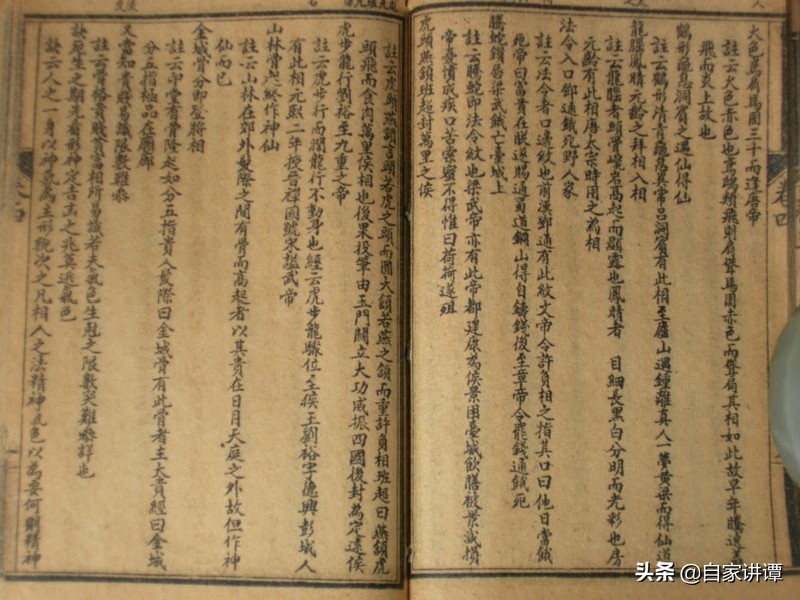 火色鳶肩馬周三十而逢唐帝
註云火色赤色也鳶鴟類飛則肩聳馬周赤色而聳肩其相如此故早年騰達
飛而炎上故也
鶴形龜息洞賓之遇仙得仙
註云鶴形清奇龜息異常呂洞賓有此相至廬山遇鍾離真人一夢黃粱而得仙道
龍腦鳳睛元齡之拜相入相
註云龍腦者頭骨崢嶸高起而顯露也鳳睛者 目細長黑白分明而光彩也房
元齡有此相唐太宗時用之為相
法令入口鄧通餓死野人家
註云法令者口邊紋也前漢鄧通有此紋文帝令許負相之指其口曰他日當餓
死帝曰富貴在朕遂賜通蜀道銅山得自鑄錢後至章帝令罷錢通餓死
騰蛇鎖唇梁武餓亡臺城上
註云騰蛇即法令紋也梁武帝亦有此帝都建康為侯景困臺城飲膳被景減損
帝憂憤成疾口苦索蜜不得惟曰荷荷遂殂
虎頭燕頷班超封萬里之侯
註云虎頭燕頷言頭若虎之頭而圓大頷若燕之頷而重許負相班超曰燕頷虎
頭飛而食肉萬里侯相也後果投筆由玉門關立大功威振四國後封為定遠侯
虎步龍行劉裕至九重之帝
註云虎步行而濶龍行不動身也經云虎步龍驤位至侯王劉裕字德興彭城人
有此相元熙二年授晉禪國號宋諡武帝
山林骨起終作神仙
註云山林在郊外髮際之間有骨而高起者以其貴在日月天庭之外故但作神
仙而已
金城骨分卽登將相
註云印堂有骨隆起如分五指貴入髮際曰金城骨有此骨者主大貴經曰金城
分五指極品在廟廊
又當知貴賤易識限數難參
註云骨格貴賤貧富相所易識者夫氣色生尅之限數实難參詳也
訣云生之期先看形神定吉凶之兆莫逃氣色
訣云人之一身以神氣為主形貌次之凡相人之法精神氣色以為要何則精神
卷四
头条 @自家讲谭